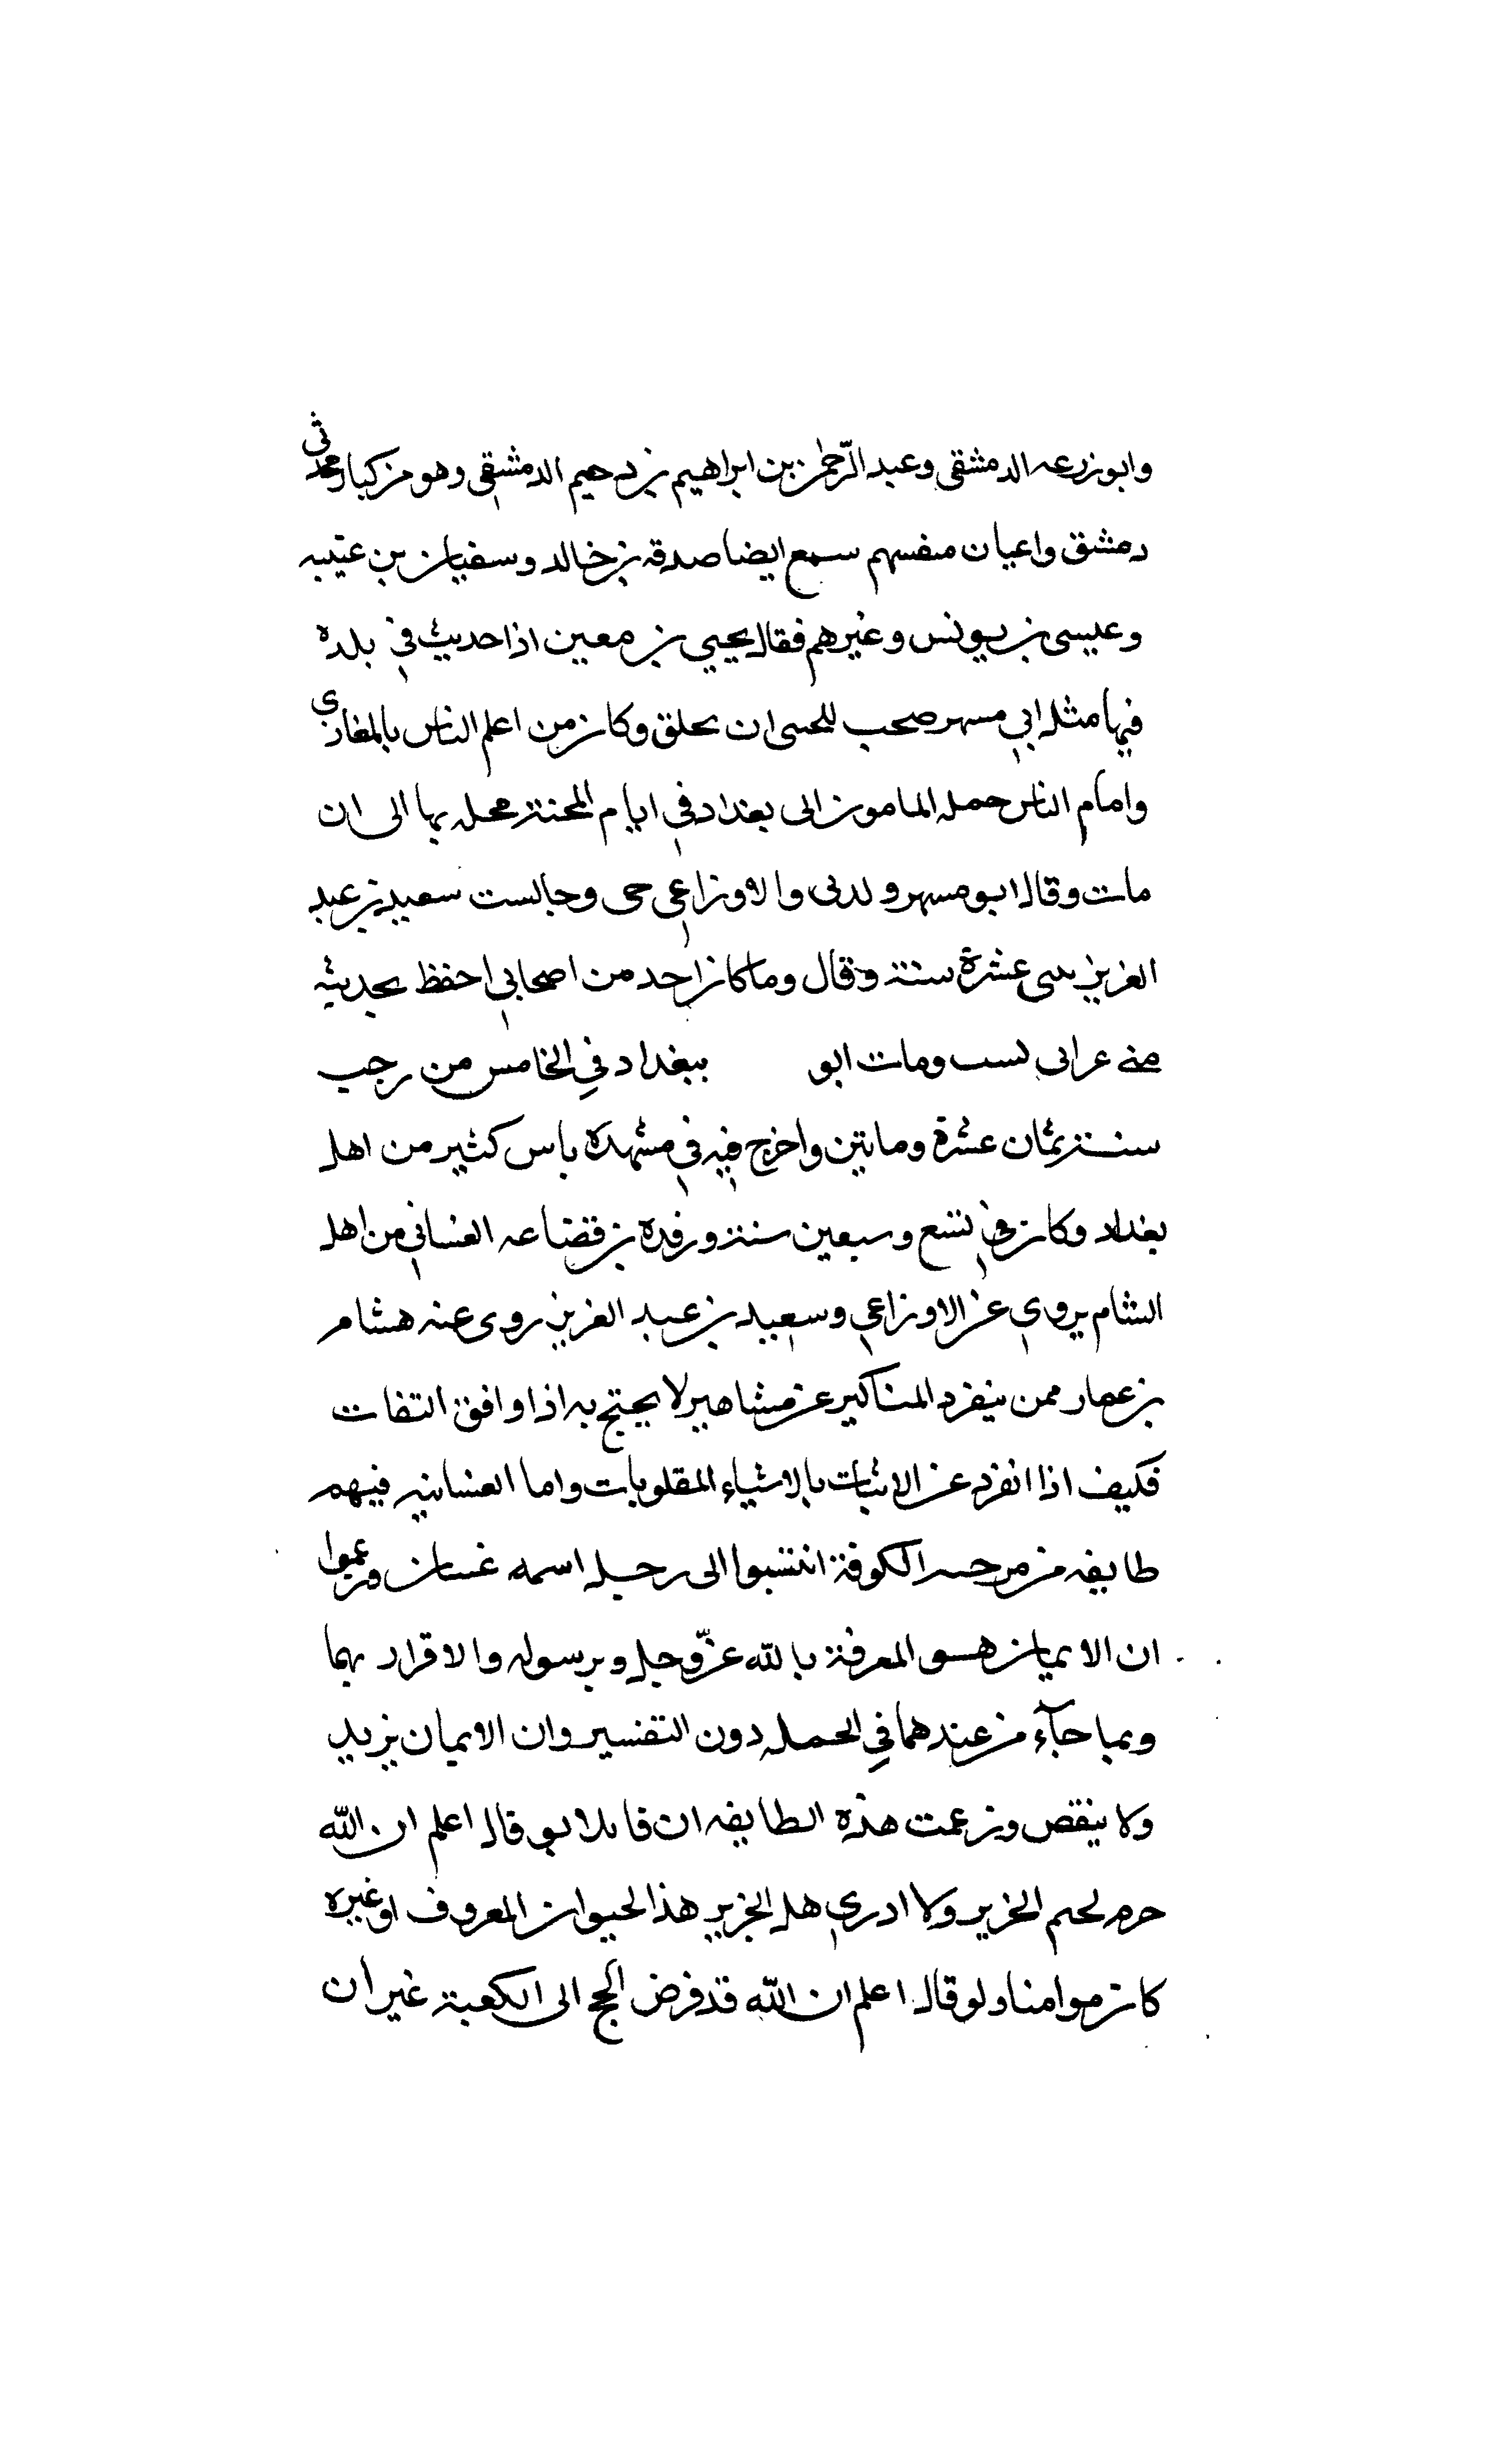 وابو زرعه الدمشقى وعبد الرّحمن بن ابراهيم بن دحيم الدمشقي وهو من كبار محدثي
دمشق واعيان منفسهم سمع ايضا صدقه بن خالد وسفيان بن عيينه
وعيسى بن يونس وغيرهم فقال يحيي بن معين اذا حديث في بلده
فيها مثل ابي مسهر صحب للحسى ان يحلق وكان من اعلم الناس بالمغازي
وامام الناس حمله المامون الى بغداد في ايام المحنة محله بها الى ان
مات وقال ابو مسهر ولدنى والاوزاعي حى وجالست سعيد بن عبد
العزيز سى عشرة سنة وقال وما كان احد من اصحابي احفظ بحديثه
منى عرانى لست ومات ابو ببغداد في الخامس من رجب
سنة ثمان عشرة ومايتين واخرج فيه في مشهده باس كثير من اهل
بغداد وكان في تسع وسبعين سنة ورفده بن قضاعه الغساني من اهل
الشام يروي عن الاوزاعي وسعيد بن عبد العزيز روى عنه هشام
بن عمار ممن ينفرد المناكير عن مشاهير لا يحتج به اذا وافق الثقات
فكيف اذا انفرد عن الاثبات بالاشياء المقلوبات واما الغسانيه فيهم
طايفه من مرجيه الكوفة انتسبوا الى رجل اسمه غسان وزعموا
ان الايمان هو المعرفة بالله عزّ وجل وبرسوله والاقرار بهما
وبما جآء من عندهما في الحمله دون التفسير وان الايمان يزيد
ولا ينقص وزعمت هذه الطايفه ان قايلا لو قال اعلم ان الله
حرم لحم الخنزير ولا ادري هل الخنزير هذا الحيوان المعروف او غيره
كان موامنا ولو قال اعلم ان الله قد فرض الحج الى الكعبة غير ان